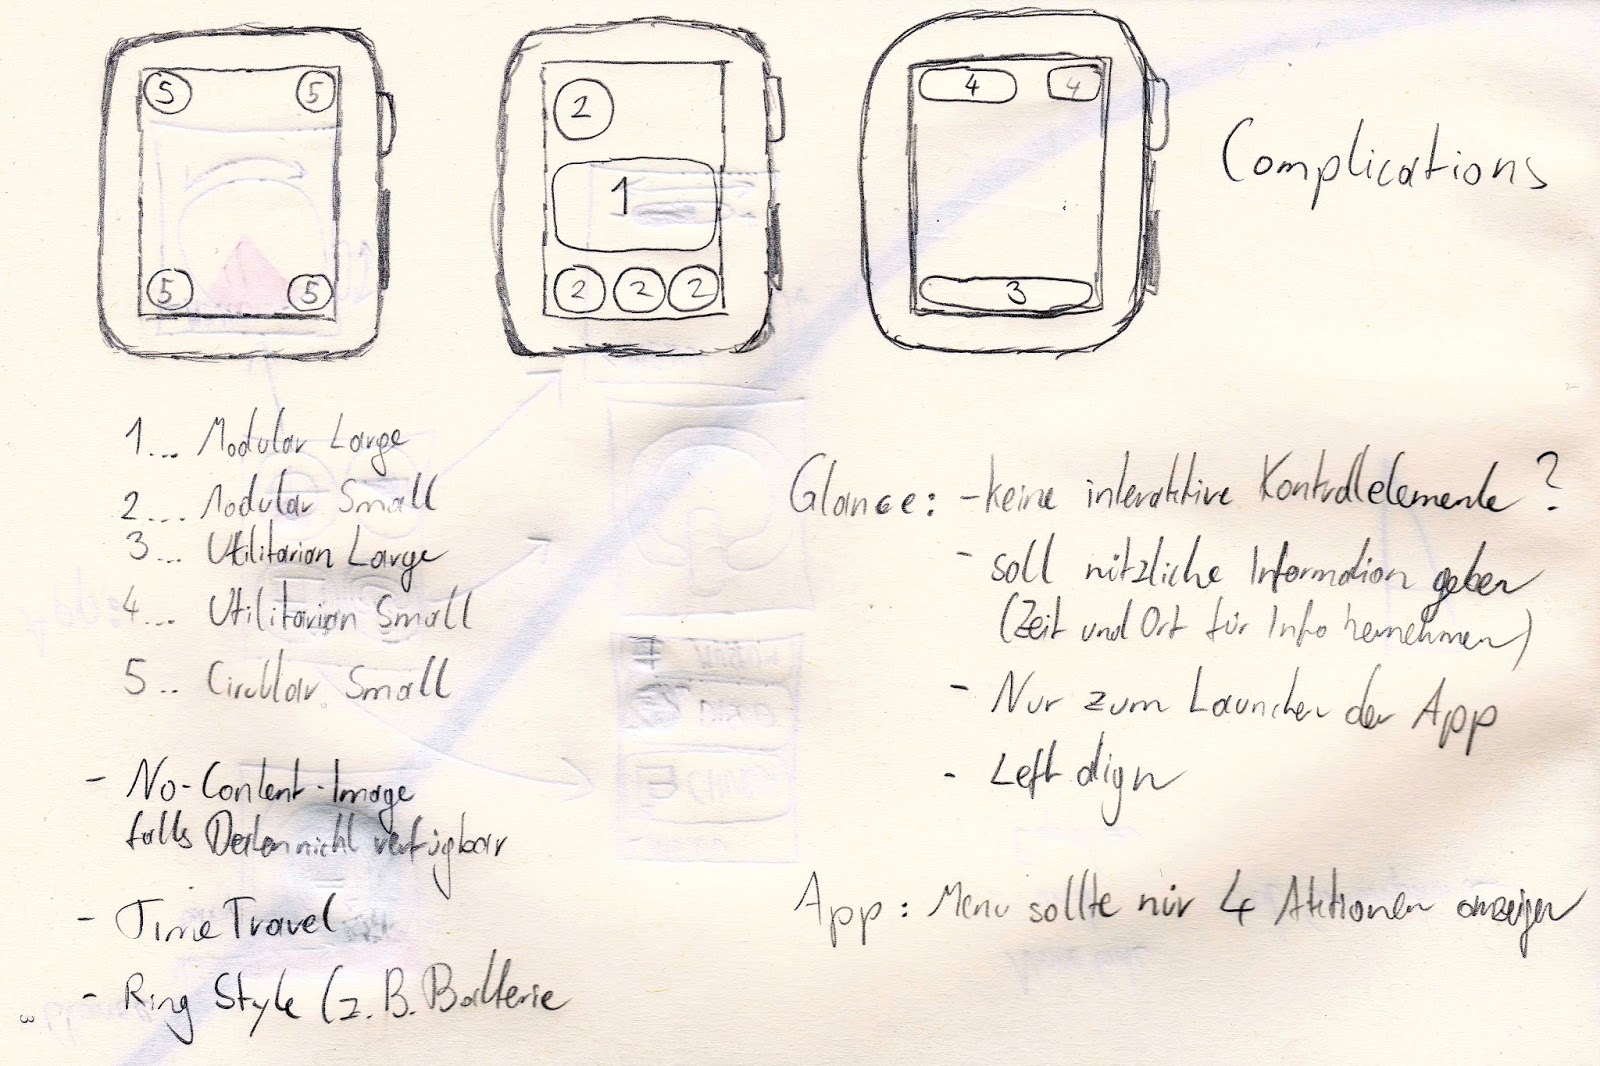 5 5
5 5
2
1
2 2 2
4 4
3
Complications
1... Modular Large
2... Modular Small
3... Utilitarian Large
4... Utilitarian Small
5.. Circular Small
- No-Content-Image
falls Daten nicht verfügbar
- Time Travel
- Ring Style (z.B. Batterie
Glance: - keine interaktive Kontrollelemente?
- soll nützliche Information geben
(Zeit und Ort für Info hernehmen)
- Nur zum Launchen der App
- Left align
App: Menu sollte nur 4 Aktionen anzeigen
3